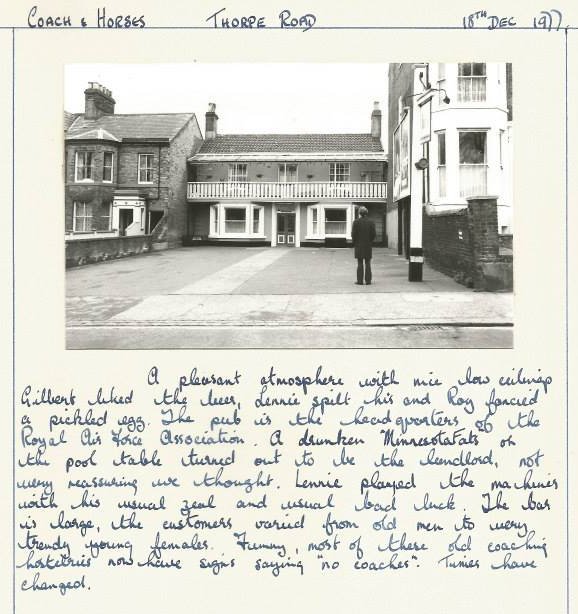 COACH & HORSES THORPE ROAD 18TH DEC 1977.
A pleasant atmosphere with nice low ceilings
Gilbert liked the beer, Lennie spilt his and Roy fancied
a pickled egg. The pub is the headquarters of the
Royal Air Force Association. A drunken "Minnesotafats" on
the pool table turned out to be the landlord, not
very reassuring we thought. Lennie played the machines
with his usual zeal and usual bad luck. The bar
is large, the customers varied from old men to very
trendy young females. Funny, most of these old coaching
hostelries now have signs saying "no coaches". Times have
changed.